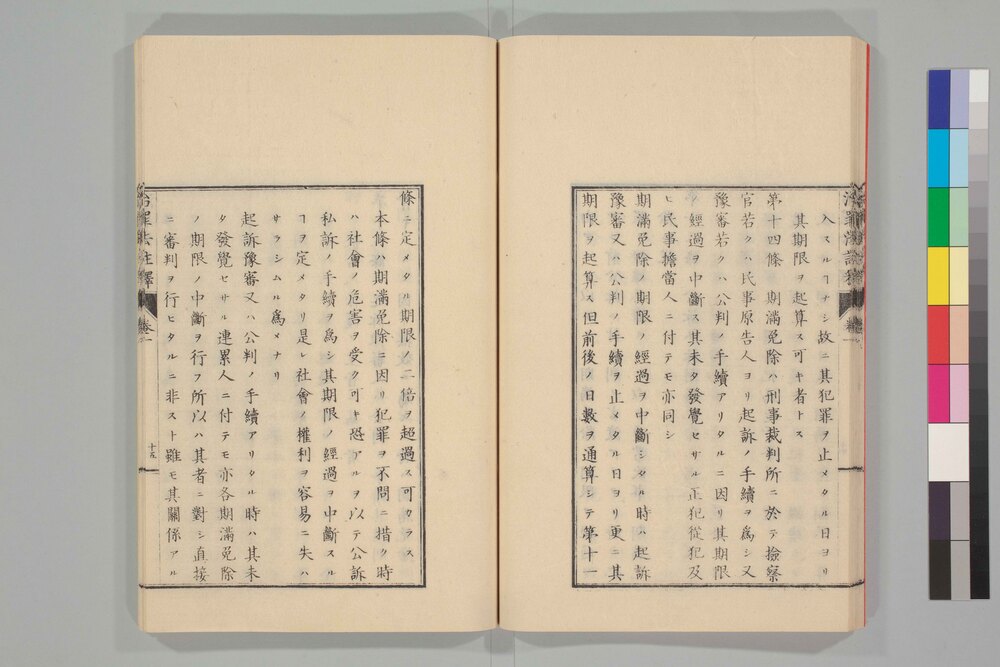 入スルヿナシ故ニ其犯罪ヲ止メタル日ヨリ
其期限ヲ起算ス可キ者トス
第十四條 期滿免除ハ刑事裁判所ニ於テ撿察
官若クハ民事原告人ヨリ起訴ノ手續ヲ爲シ又
豫審若クハ公判ノ手續アリタルニ因リ其期限
ノ經過ヲ中斷ス其未タ發覺セサル正犯從犯及
ヒ民事擔當人ニ付テモ亦同シ
期滿免除ノ期限ノ經過ヲ中斷シタル時ハ起訴
豫審又ハ公判ノ手續ヲ止メタル日ヨリ更ニ其
期限ヲ起算ス但前後ノ日數ヲ通算シテ第十一
條ニ定メタル期限ノ二倍ヲ超過ス可カラス
本條ハ期滿免除ニ因リ犯罪ヲ不問ニ措ク時
ハ社會ノ危害ヲ受ク可キ恐アルヲ以テ公訴
私訴ノ手續ヲ爲シ其期限ノ經過ヲ中斷スル
ヿヲ定メタリ是レ社會ノ權利ヲ容易ニ失ハ
サラシムル爲メナリ
起訴豫審又ハ公判ノ手續アリタル時ハ其未
タ發覺セサル連累人ニ付テモ亦各期滿免除
ノ期限ノ中斷ヲ行フ所以ハ其者ニ對シ直接
ニ審判ヲ行ヒタルニ非スト雖モ其關係アル
治罪法註釋 卷一 十五